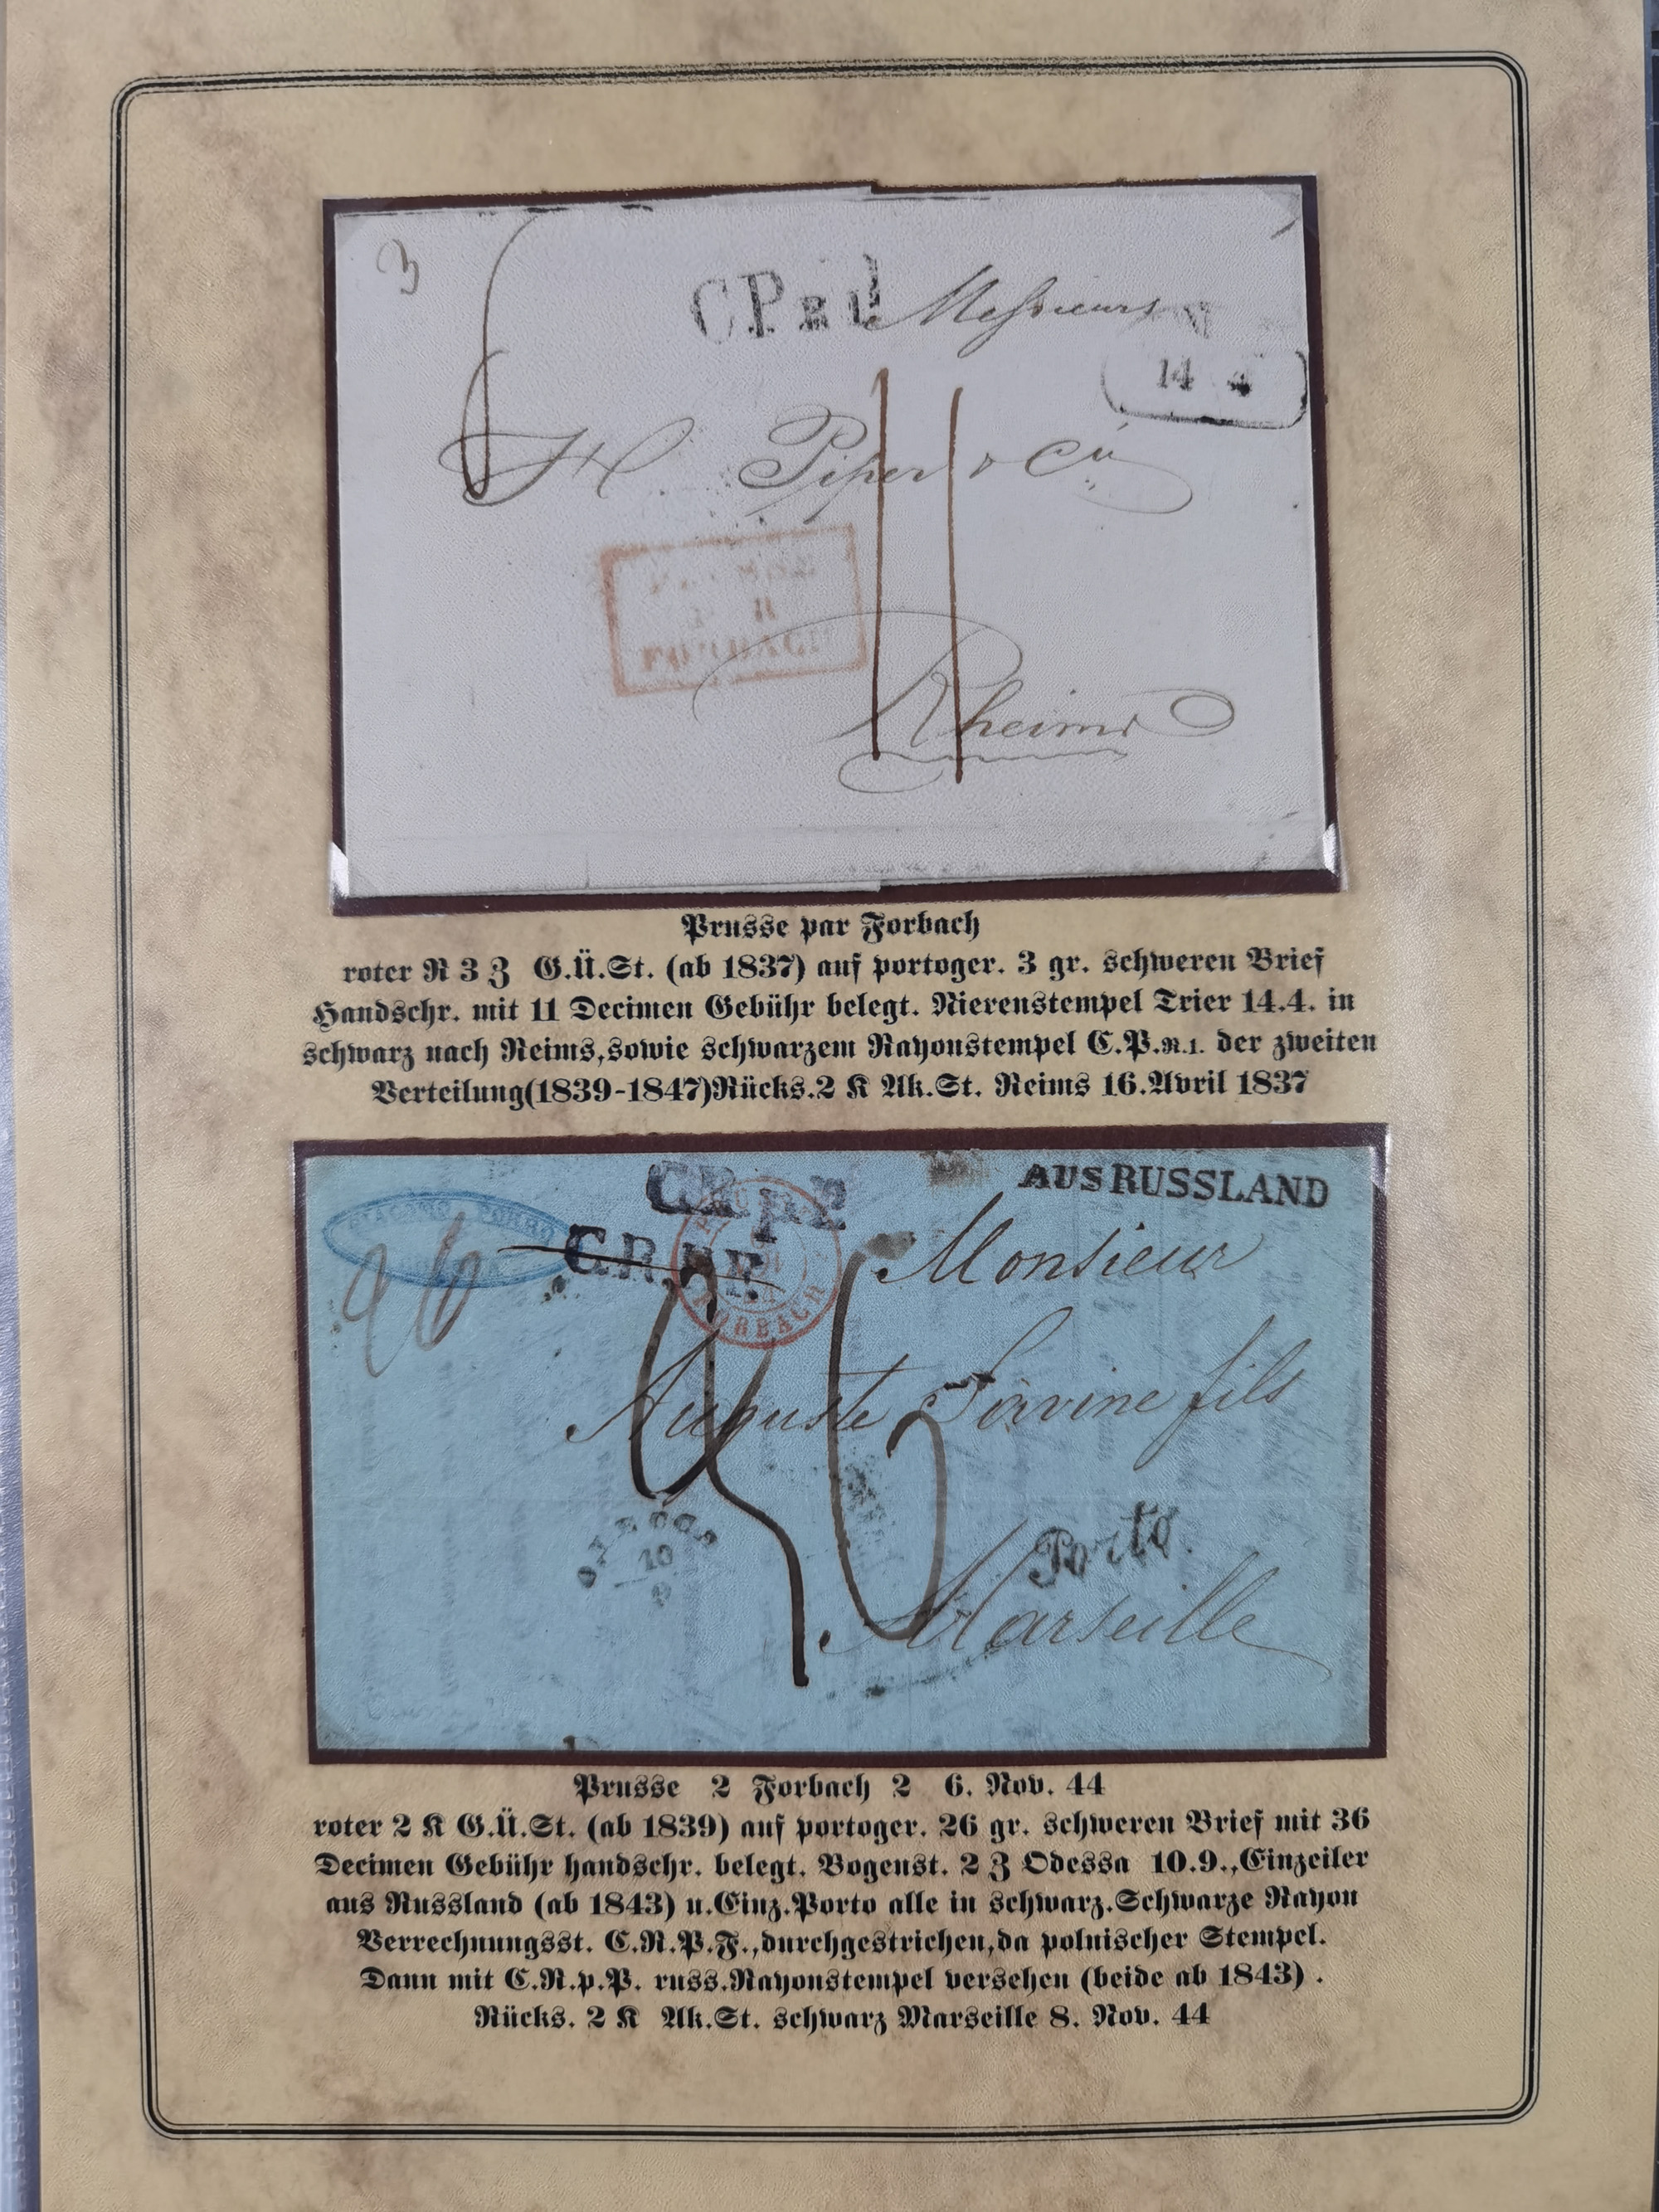 3
C.P.R.1.
Messieurs
14 4
H. Piper & Cie
11
FORBACH
Rheims
Prusse par Forbach
roter R 3 Z G.Ü.St. (ab 1837) auf portoger. 3 gr. schweren Brief
Handschr. mit 11 Decimen Gebühr belegt. Nierenstempel Trier 14.4. in
schwarz nach Reims,sowie schwarzem Rayonstempel C.P.R.1. der zweiten
Verteilung(1839-1847)Rücks.2 K Ak.St. Reims 16.Avril 1837
C.R.p.P.
AUS RUSSLAND
GIACOMO PORRO
C.R.P.F.
26
FORBACH
Monsieur
Auguste fils
36
ODESSA
10
9
Porto.
Marseille
Prusse 2 Forbach 2 6. Nov. 44
roter 2 K G.Ü.St. (ab 1839) auf portoger. 26 gr. schweren Brief mit 36
Decimen Gebühr handschr. belegt. Bogenst. 2 Z Odessa 10.9.,Einzeiler
aus Russland (ab 1843) u.Einz.Porto alle in schwarz.Schwarze Rayon
Verrechnungsst. C.R.P.F.,durchgestrichen,da polnischer Stempel.
Dann mit C.R.p.P. russ.Rayonstempel versehen (beide ab 1843) .
Rücks. 2 K Ak.St. schwarz Marseille 8. Nov. 44